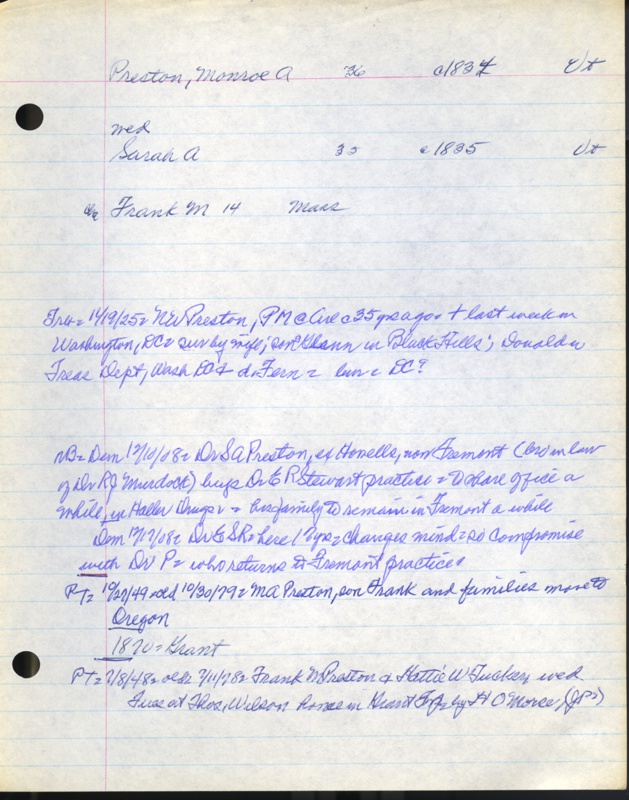 Preston, Monroe A 36 c1834 Vt
wed
Sarah A 35 c1835 Vt
Frank M 14 Mass
14/9/25= NW Preston, PM c 35 yrs ago + last week in
Washington, DC= sur by wife; son in Black Hills; Donald in
Treas Dept, Wash DC + d. Fern = bur = DC?
NB= Dem 12/10/08= Dr SA Preston, of Howells, now Fremont (bro in law
of Dr R J Murdock) buys Dr E R Stewart practise = to share office a
while, in Haller Drugs = his family to remain in Fremont a while
Dem 12/17/08= Dr E S R= here 12 yrs= changes mind= so compromise
with Dr P= who returns to Fremont practice
PT= 10/27/49= old 10/30/79= MA Preston, son Frank and families move to
Oregon
1870= Grant
PT= 7/8/48= old= 7/11/78= Frank M Preston & Hattie W Tucker, wed
Tues at Thos, Wilson home in Grant by H O Morse, (JP)